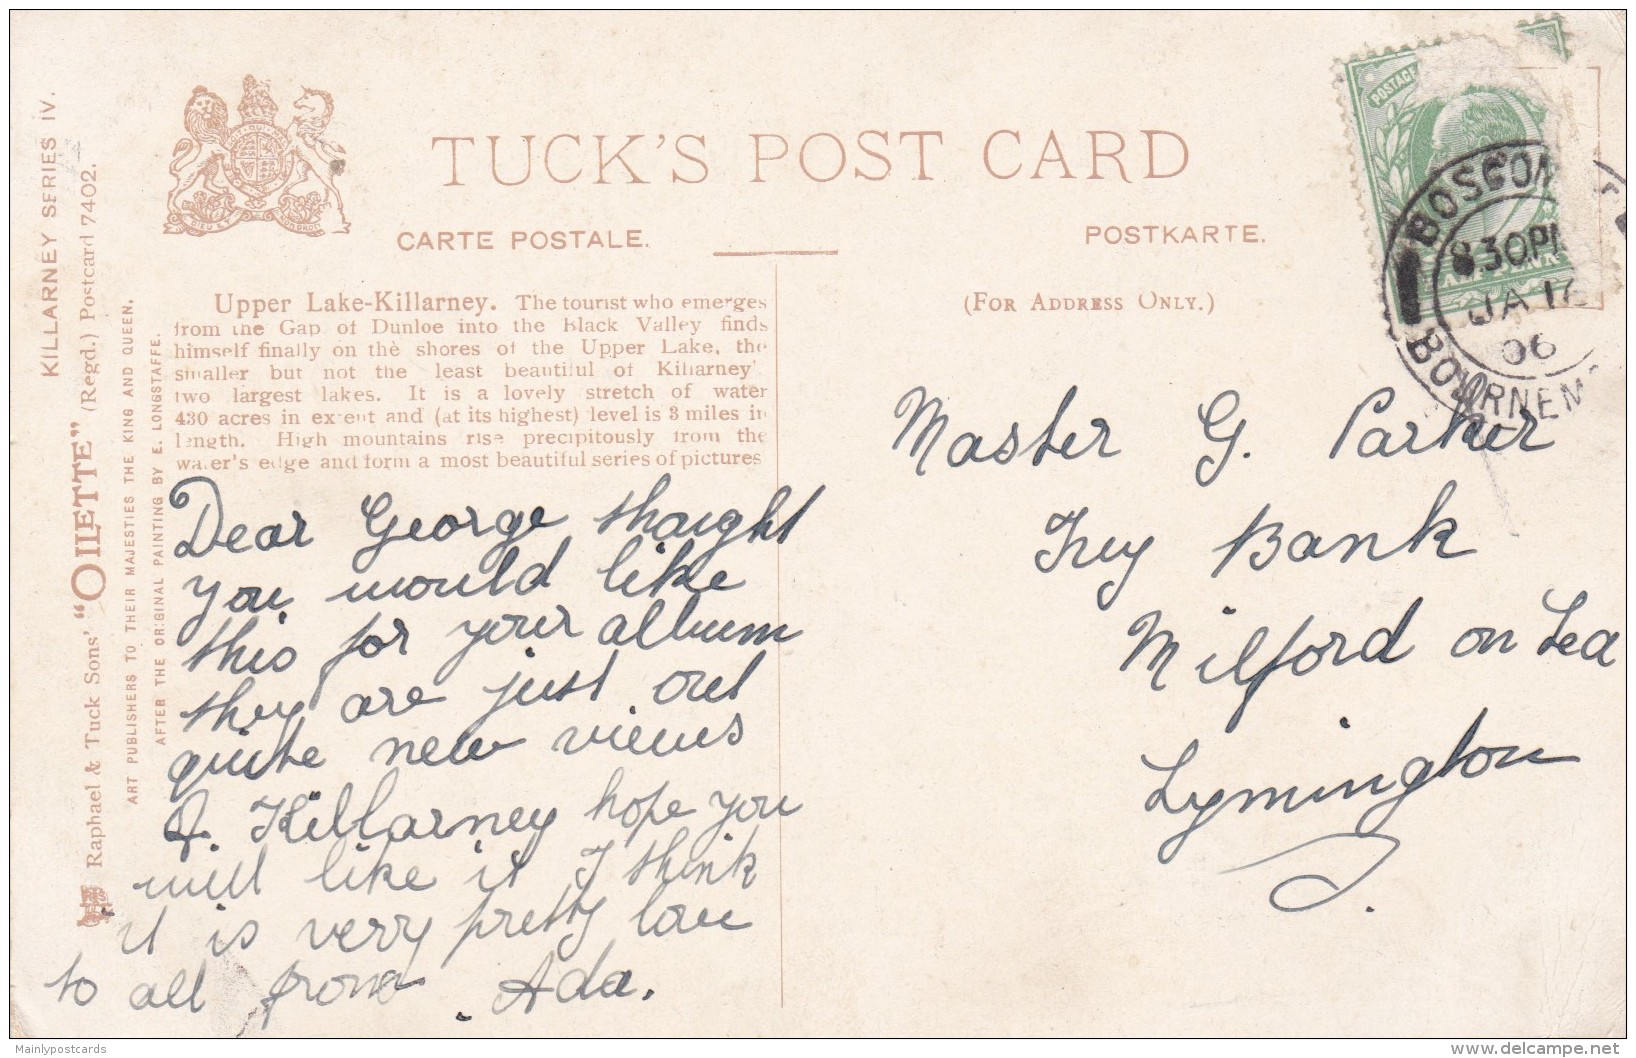 KILLARNEY SERIES IV.
Raphael & Tuck Sons' "OILETTE" (Regd.) Postcard 7402.
ART PUBLISHERS TO THEIR MAJESTIES THE KING AND QUEEN.
AFTER THE ORIGINAL PAINTING BY E. LONGSTAFFE.
TUCK'S POST CARD
CARTE POSTALE.
POSTKARTE.
(FOR ADDRESS ONLY.)
Upper Lake-Killarney. The tourist who emerges
from the Gap of Dunloe into the Black Valley finds
himself finally on the shores of the Upper Lake, the
smaller but not the least beautiful of Killarney'
two largest lakes. It is a lovely stretch of water
430 acres in extent and (at its highest) level is 3 miles in
length. High mountains rise precipitously from the
water's edge and form a most beautiful series of pictures
Dear George thought
you would like
this for your album
they are just out
quite new views
of Killarney hope you
will like it I think
it is very pretty love
to all from Ada.
Master G. Parker
Ivy Bank
Milford on Sea
Lymington
POSTAGE
BOSCOM
8 30 PM
JA 16
06
BOURNEM
DIEU ET MON DROIT
Mainlypostcards
www.delcampe.net